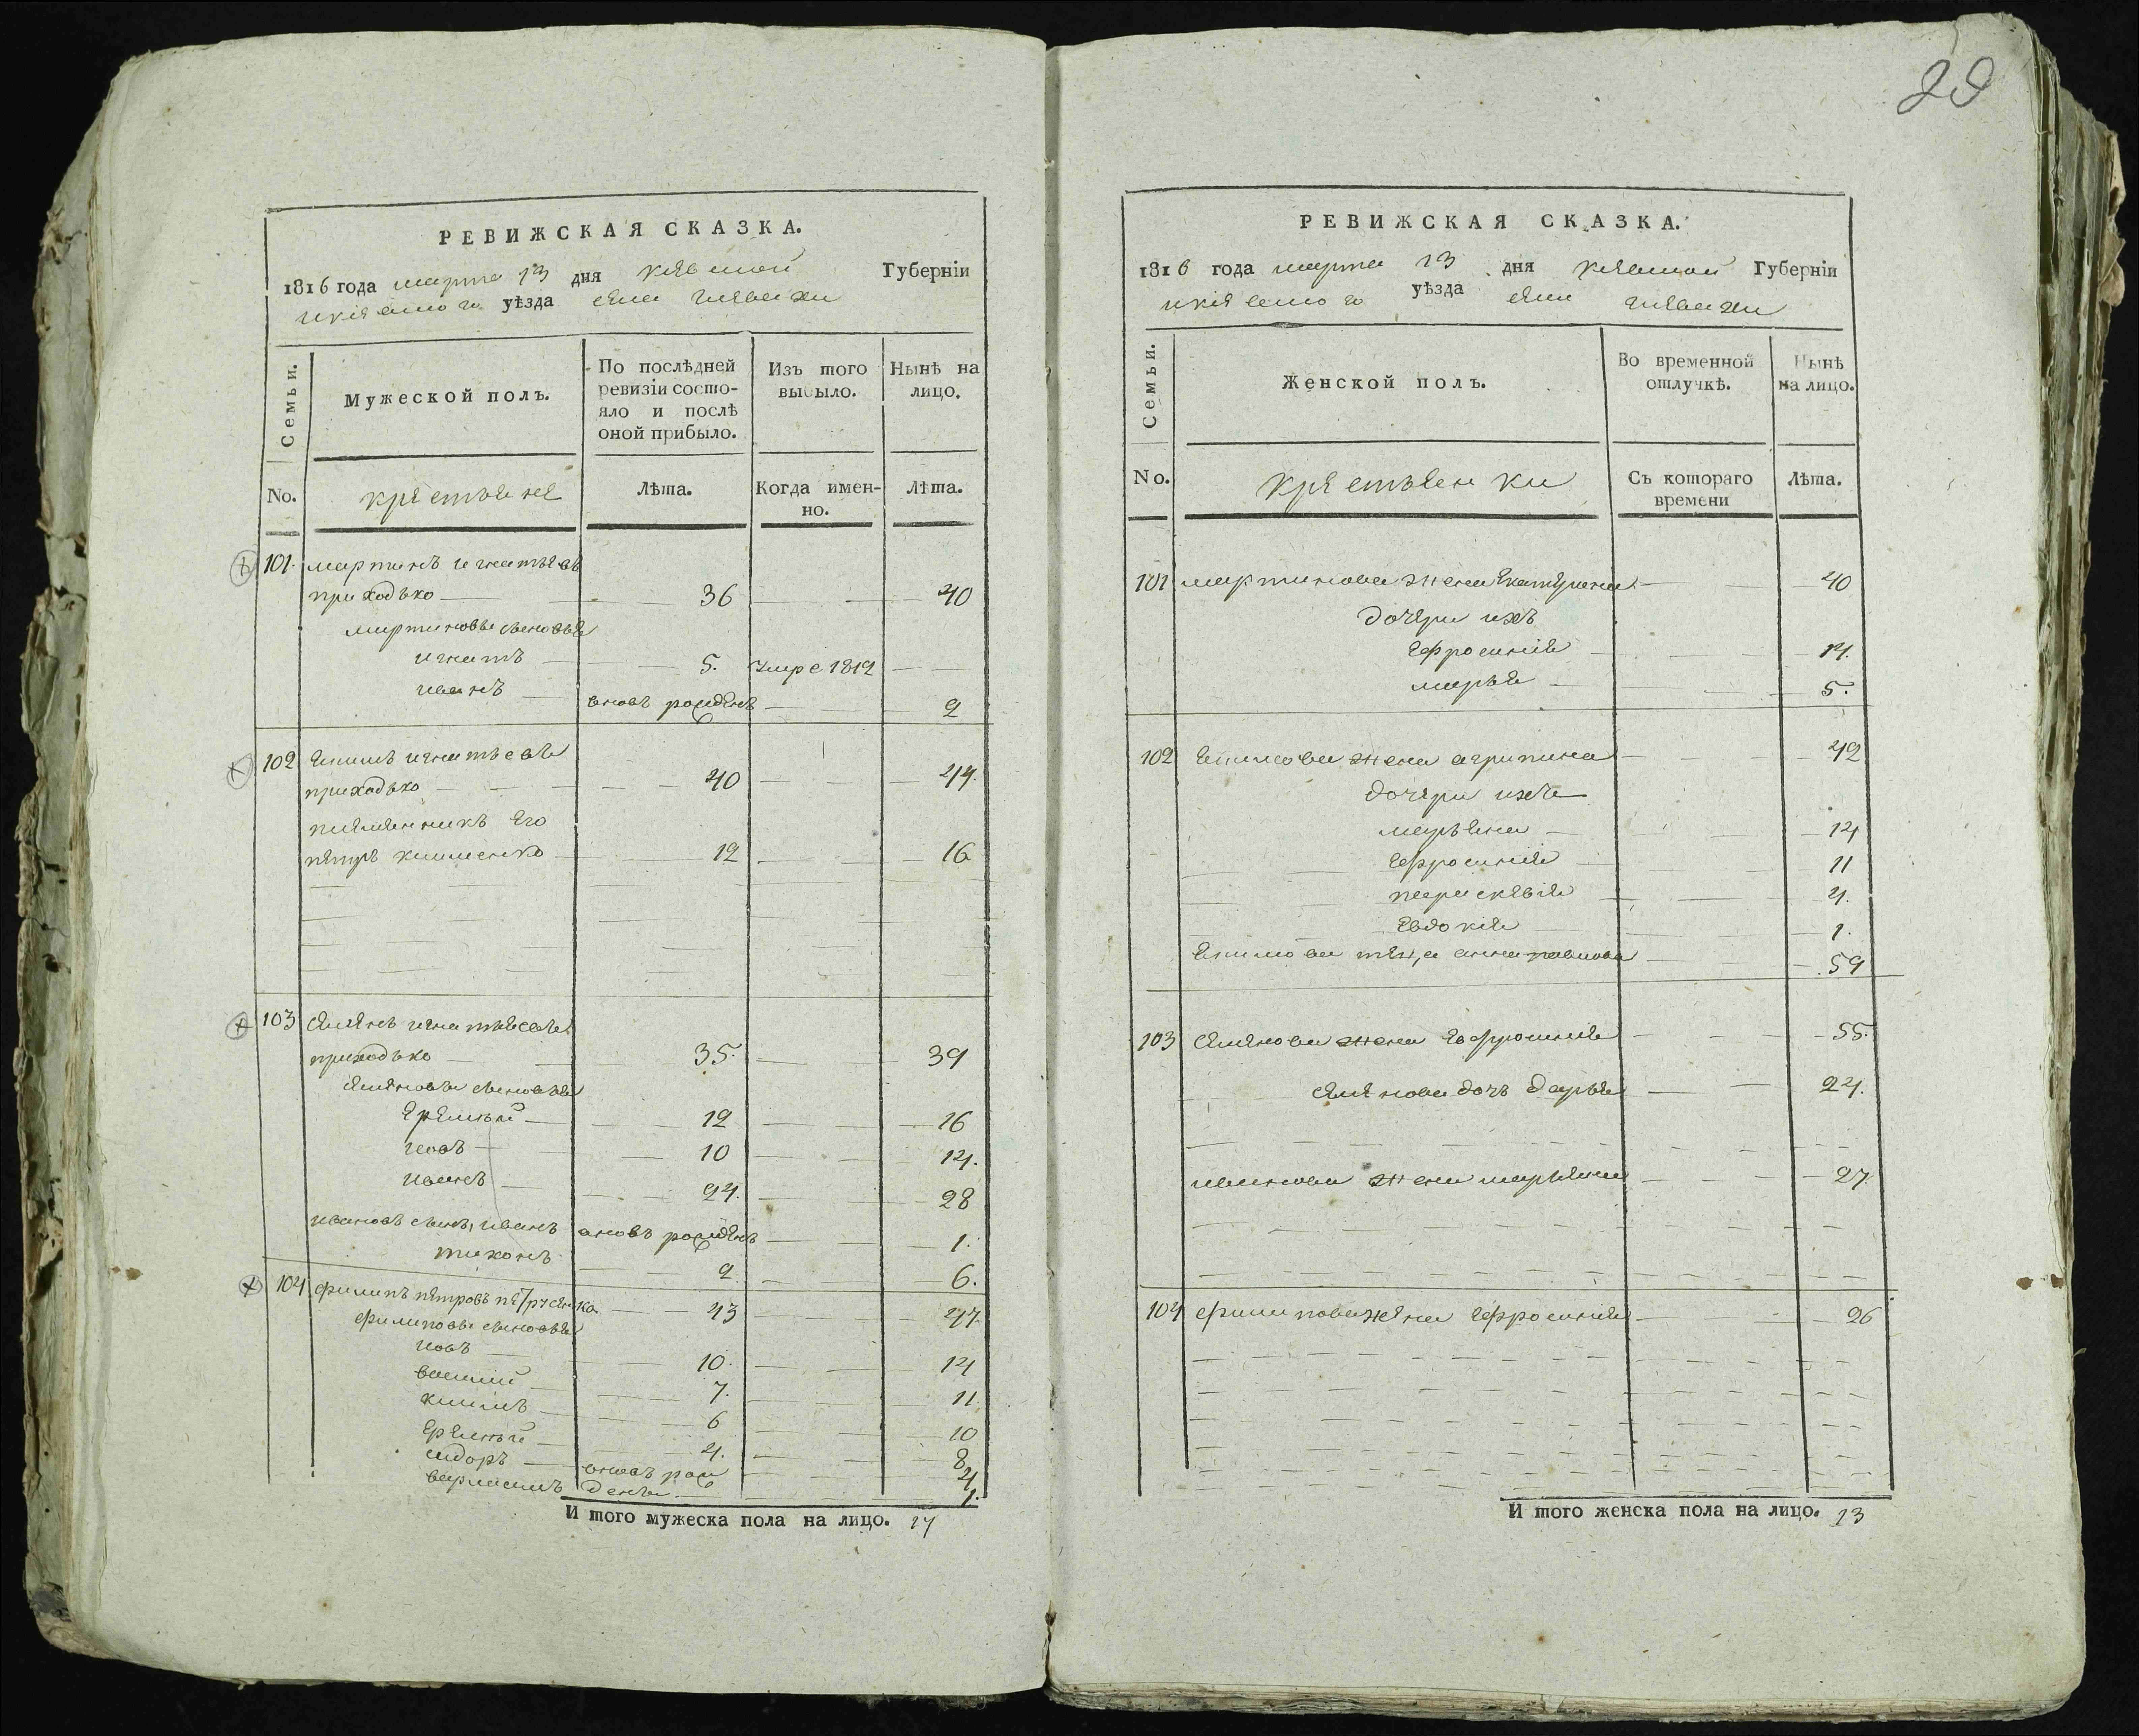 29
РЕВИЖСКАЯ СКАЗКА.
1816 года марта 13 дня Киевской Губерніи
уѣзда села
Семьи.
Мужеской полъ.
По послѣдней ревизіи состояло и послѣ оной прибыло.
Изъ того выбыло.
Нынѣ на лицо.
No.
крестьяне
Лѣта.
Когда именно.
Лѣта.
101. мартинъ игнатьевъ
приходько 36 40
мартиновы сыновья
игнатъ 5. умре 1812
иванъ вновь рожденъ 2
102 Екимъ игнатьевъ
приходько 40 44.
племенникъ Его
петръ клименко 12 16
103 семенъ игнатьевъ
приходько 35. 39
семеновы сыновья
Еремѣй 12 16
иовъ 10 14.
иванъ 24. 28
ивановъ сынъ, иванъ вновь рожденъ 1.
тихонъ 2 6.
104 филипъ петровъ 43 47.
филиповы сыновья
иовъ 10. 14
василий 7. 11
климъ 6 10
Еремѣй 4. 8
сидоръ вновь рож 4
варламъ дены 1.
И того мужеска пола на лицо. 17
РЕВИЖСКАЯ СКАЗКА.
1816 года марта 13 дня Киевской Губерніи
уѣзда села
Семьи.
Женской полъ.
Во временной отлучкѣ.
Нынѣ на лицо.
No.
крестьянки
Съ котораго времени
Лѣта.
101 мартинова жена Екатерина 40
дочери ихъ
Ефросинія 14.
марья 5.
102 Екимова жена агрипина 42
дочери ихъ
марьяна 14
Ефросинія 11
параскевія 4.
Евдокія 1.
Екимова теща анна павлова 59
103 семенова жена Ефросинія 55.
семенова дочь дарья 24.
иванова жена марьяна 27
104 филипова жена Ефросинія 26
И того женска пола на лицо. 13